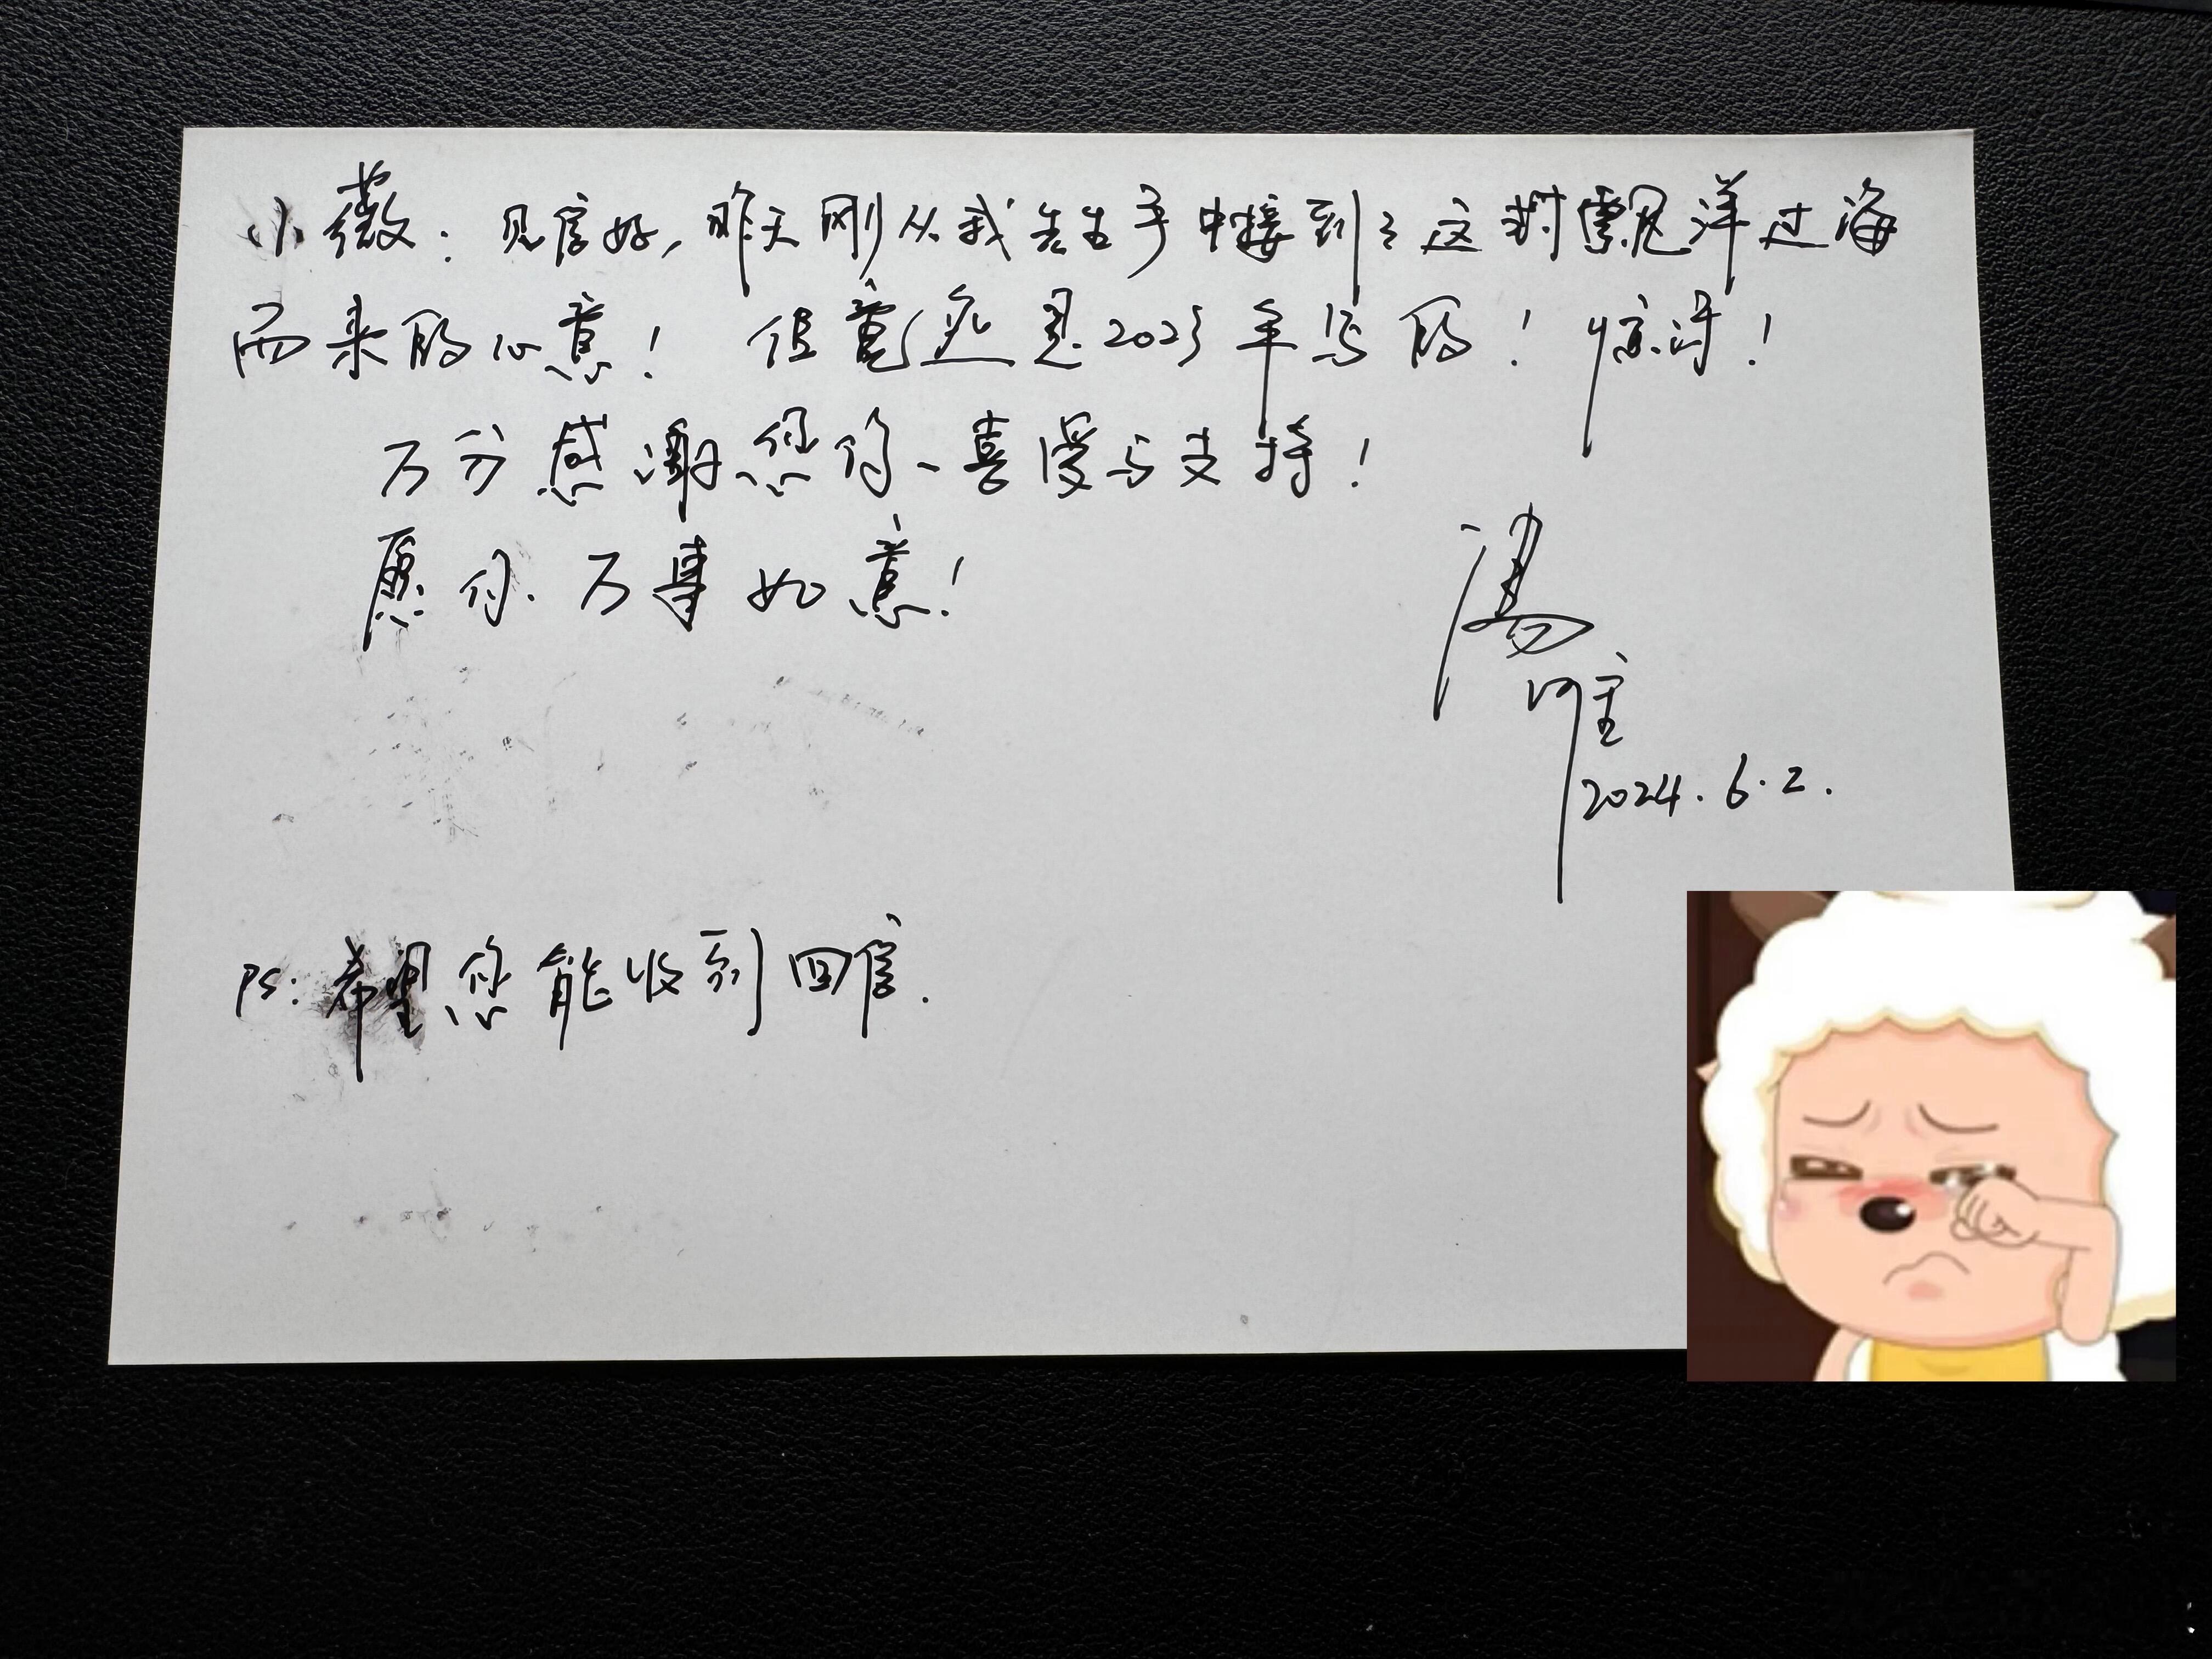 小薇：见信好，昨天刚从我先生手中接到了这封飘洋过海
而来的心意！但竟然是2023年写的！惊讶！
万分感谢您的喜爱与支持！
愿你万事如意！
汤唯
2024.6.2.
PS：希望您能收到回信.